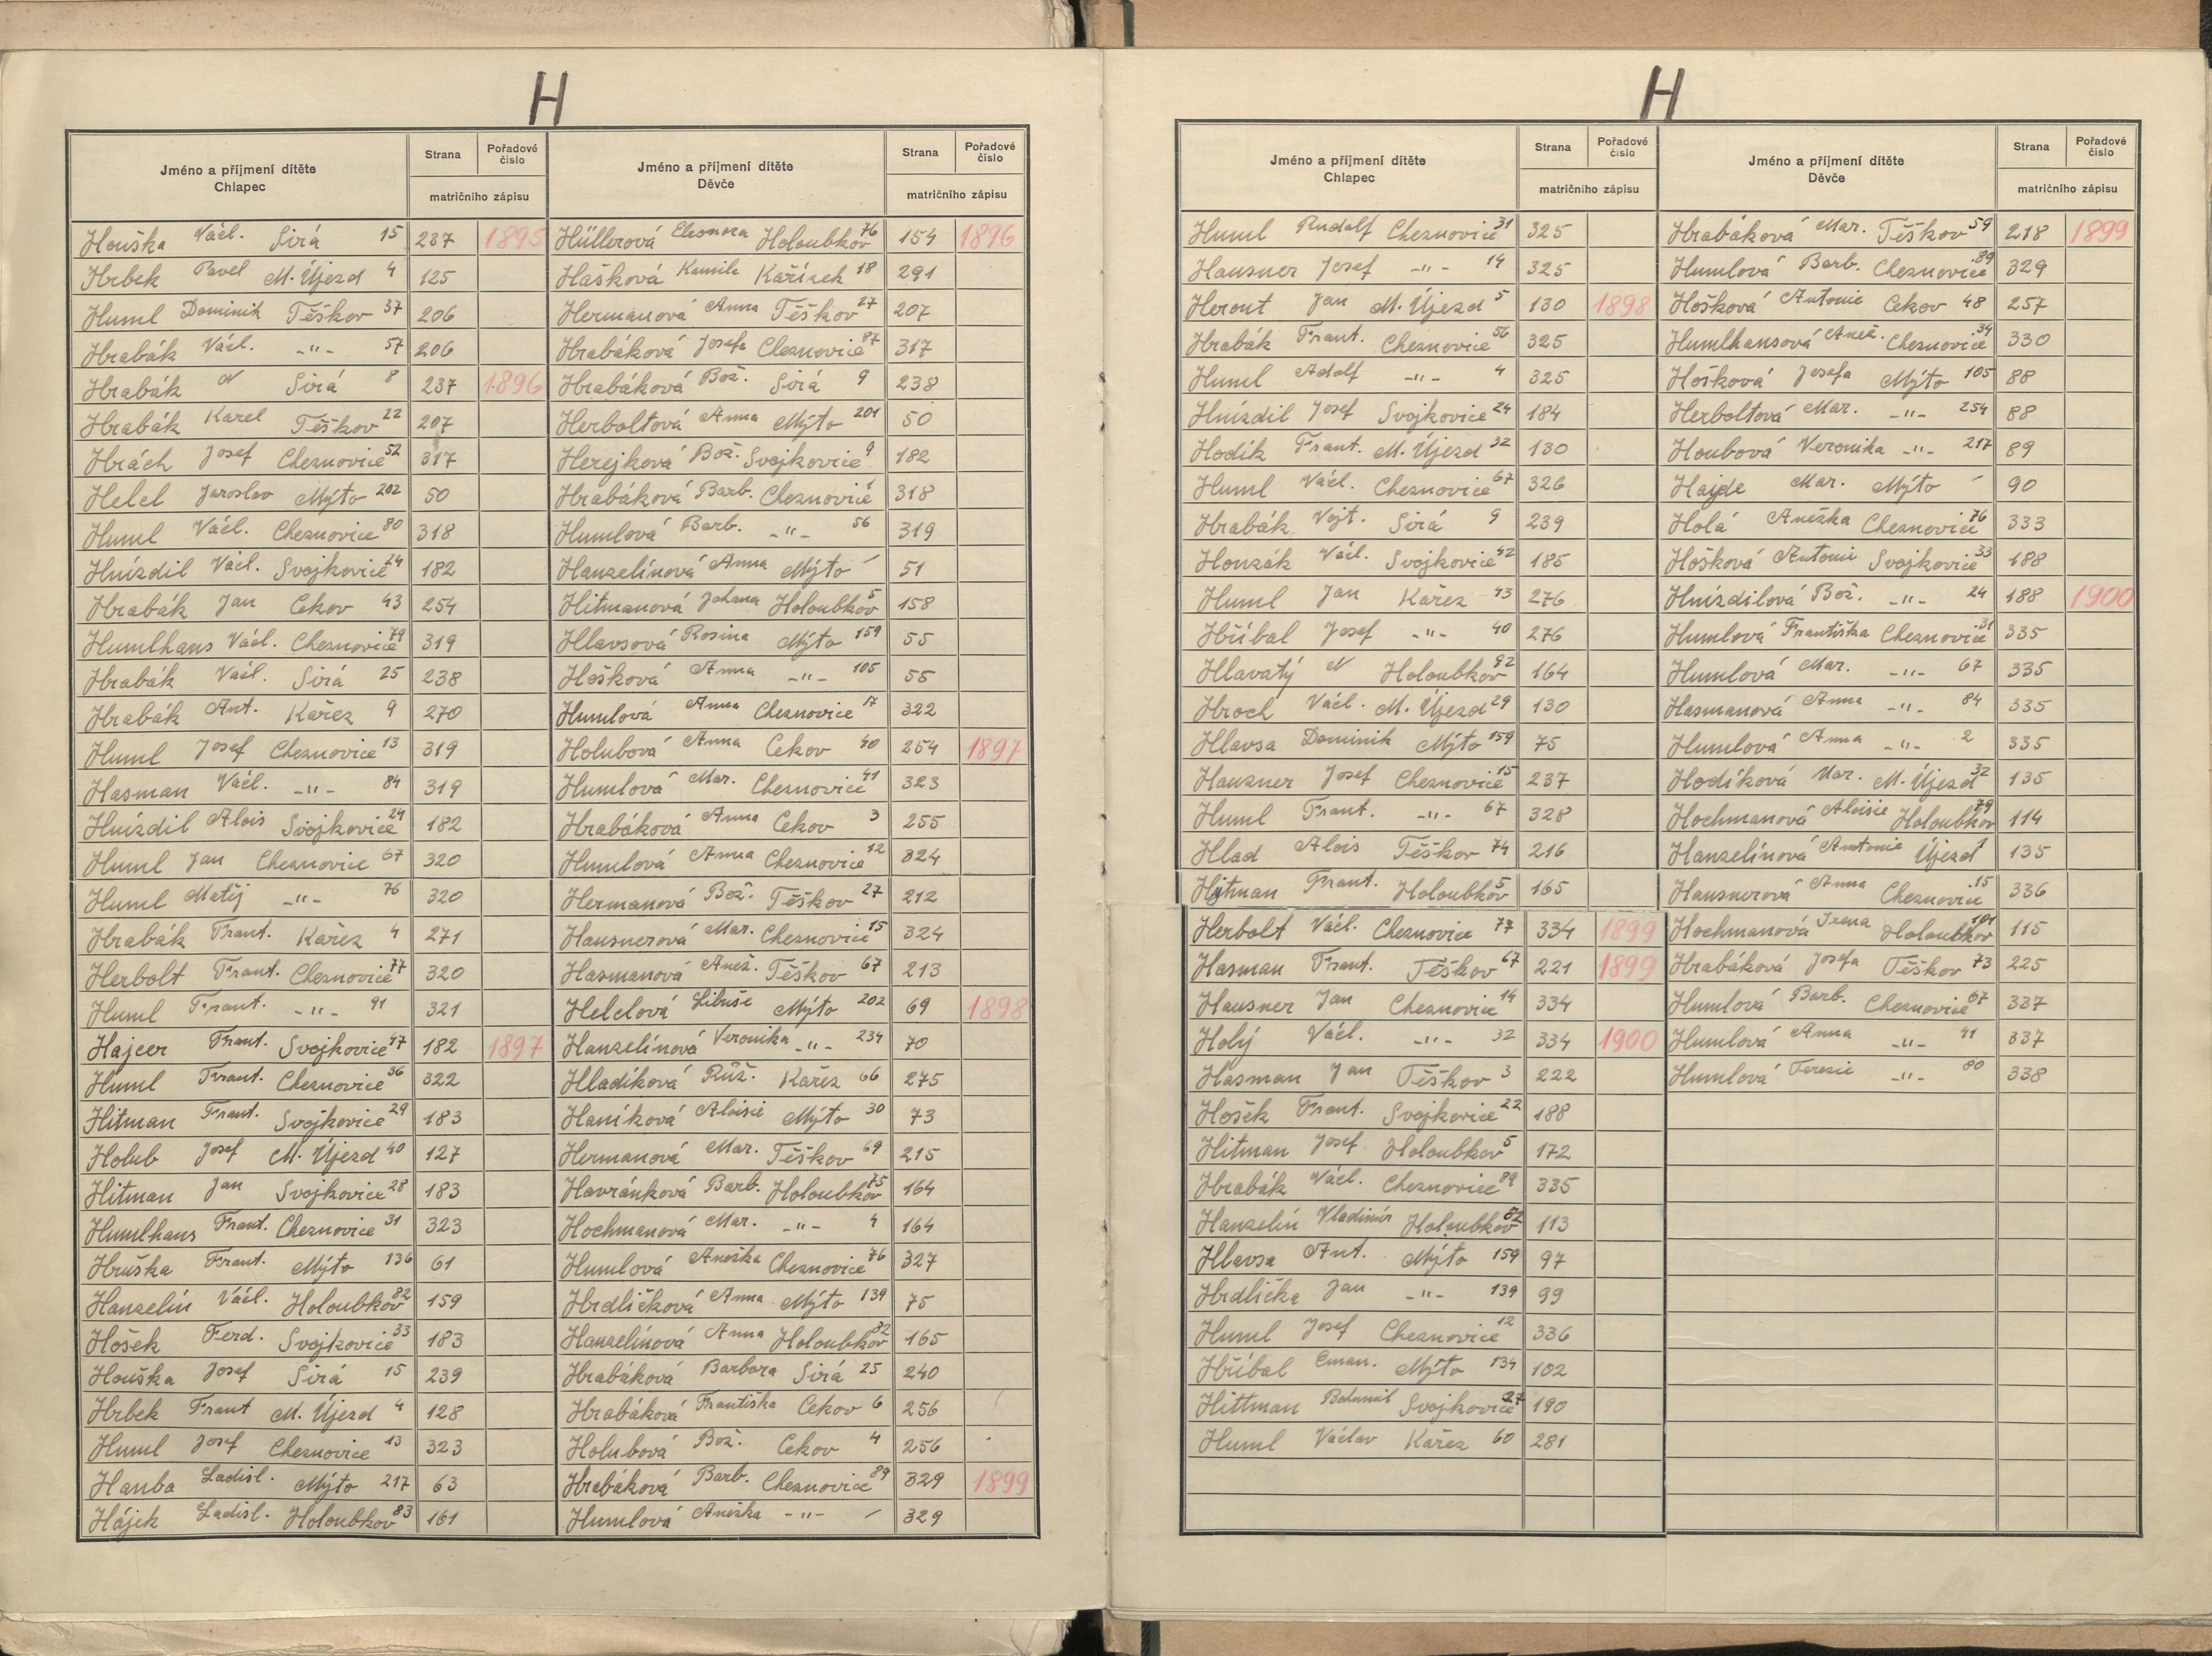 H
Jméno a příjmení dítěte
Chlapec
Strana
Pořadové číslo
matričního zápisu
Jméno a příjmení dítěte
Děvče
Strana
Pořadové číslo
matričního zápisu
Houška Václ. Sirá 15 237 1895
Hrbek Pavel M. Újezd 4 125
Huml Dominik Těškov 37 206
Hrabák Václ. -"- 57 206
Hrabák N Sirá 8 237 1896
Hrabák Karel Těškov 22 207
Hrách Josef Cheznovice 52 317
Helel Jaroslav Mýto 202 50
Huml Václ. Cheznovice 80 318
Hnízdil Václ. Svojkovice 24 182
Hrabák Jan Cekov 43 254
Humlhans Václ. Cheznovice 79 319
Hrabák Václ. Sirá 25 238
Hrabák Ant. Kařez 9 270
Huml Josef Cheznovice 13 319
Hasman Václ. -"- 84 319
Hnízdil Alois Svojkovice 24 182
Huml Jan Cheznovice 67 320
Huml Matěj -"- 76 320
Hrabák Frant. Kařez 4 271
Herbolt Frant. Cheznovice 77 320
Huml Frant. -"- 91 321
Hajcer Frant. Svojkovice 47 182 1897
Huml Frant. Cheznovice 36 322
Hitman Frant. Svojkovice 29 183
Holub Josef M. Újezd 40 127
Hitman Jan Svojkovice 28 183
Humlhans Frant. Cheznovice 31 323
Hruška Frant. Mýto 136 61
Hanzelín Václ. Holoubkov 82 159
Hošek Ferd. Svojkovice 33 183
Houška Josef Sirá 15 239
Hrbek Frant M. Újezd 4 128
Huml Josef Cheznovice 13 323
Hauba Ladisl. Mýto 217 63
Hájek Ladisl. Holoubkov 83 161
Hüllerová Eleonora Holoubkov 76 154 1896
Hašková Kamila Kařízek 18 291
Hermanová Anna Těškov 27 207
Hrabáková Josefa Cheznovice 87 317
Hrabáková Bož. Sirá 9 238
Herboltová Anna Mýto 201 50
Herejková Bož. Svojkovice 9 182
Hrabáková Barb. Cheznovice 318
Humlová Barb. -"- 56 319
Hanzelínová Anna Mýto 51
Hitmanová Johana Holoubkov 5 158
Hlavsová Rosina Mýto 159 55
Hošková Anna -"- 105 55
Humlová Anna Cheznovice 17 322
Holubová Anna Cekov 40 254 1897
Humlová Mar. Cheznovice 41 323
Hrabáková Anna Cekov 3 255
Humlová Anna Cheznovice 12 324
Hermanová Bož. Těškov 27 212
Hausnerová Mar. Cheznovice 15 324
Hasmanová Anež. Těškov 67 213
Helelová Libuše Mýto 202 69 1898
Hanzelínová Veronika -"- 234 70
Hladíková Růž. Kařez 66 275
Haníková Aloisie Mýto 30 73
Hermanová Mar. Těškov 69 215
Havránková Barb. Holoubkov 75 164
Hochmanová Mar. -"- 4 164
Humlová Anežka Cheznovice 76 327
Hrdličková Anna Mýto 139 75
Hanzelínová Anna Holoubkov 82 165
Hrabáková Barbora Sirá 25 240
Hrabáková Františka Cekov 6 256
Holubová Bož. Cekov 4 256
Hrabáková Barb. Cheznovice 89 329 1899
Humlová Anežka -"- 329
H
Jméno a příjmení dítěte
Chlapec
Strana
Pořadové číslo
matričního zápisu
Jméno a příjmení dítěte
Děvče
Strana
Pořadové číslo
matričního zápisu
Huml Rudolf Cheznovice 31 325
Hausner Josef -"- 14 325
Herout Jan M. Újezd 5 130 1898
Hrabák Frant. Cheznovice 56 325
Huml Adolf -"- 4 325
Hnízdil Josef Svojkovice 24 184
Hodík Frant. M. Újezd 32 130
Huml Václ. Cheznovice 67 326
Hrabák Vojt. Sirá 9 239
Houzák Václ. Svojkovice 42 185
Huml Jan Kařez 43 276
Hříbal Josef -"- 40 276
Hlavatý N Holoubkov 92 164
Hroch Václ. M. Újezd 29 130
Hlavsa Dominik Mýto 159 75
Hauzner Josef Cheznovice 15 237
Huml Frant. -"- 67 328
Hlad Alois Těškov 74 216
Hitman Frant. Holoubkov 5 165
Herbolt Václ. Cheznovice 77 334 1899
Hasman Frant. Těškov 67 221 1899
Hausner Jan Cheznovice 14 334
Holý Václ. -"- 32 334 1900
Hasman Jan Těškov 3 222
Hošek Frant. Svojkovice 22 188
Hitman Josef Holoubkov 5 172
Hrabák Václ. Cheznovice 89 335
Hanzelín Vladimír Holoubkov 82 113
Hlavsa Ant. Mýto 159 97
Hrdlička Jan -"- 139 99
Huml Josef Cheznovice 12 336
Hříbal Eman. Mýto 134 102
Hittman Bohumil Svojkovice 27 190
Huml Václav Kařez 60 281
Hrabáková Mar. Těškov 59 218 1899
Humlová Barb. Cheznovice 89 329
Hošková Antonie Cekov 48 257
Humlhansová Anež. Cheznovice 34 330
Hošková Josefa Mýto 105 88
Herboltová Mar. -"- 254 88
Houbová Veronika -"- 217 89
Hajde Mar. Mýto 90
Holá Anežka Cheznovice 76 333
Hošková Antonie Svojkovice 33 188
Hnízdilová Bož. -"- 24 188 1900
Humlová Františka Cheznovice 31 335
Humlová Mar. -"- 67 335
Hasmanová Anna -"- 84 335
Humlová Anna -"- 2 335
Hodíková Mar. M. Újezd 32 135
Hochmanová Aloisie Holoubkov 79 114
Hanzelínová Antonie Újezd 1 135
Hausnerová Anna Cheznovice 15 336
Hochmanová Irena Holoubkov 101 115
Hrabáková Josefa Těškov 73 225
Humlová Barb. Cheznovice 67 337
Humlová Anna -"- 41 337
Humlová Terezie -"- 80 338